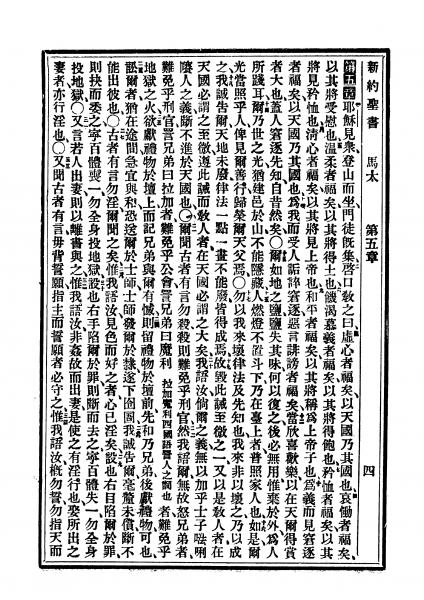 新約聖書 馬太 第五章 四
第五章耶穌見衆登山而坐門徒旣集啓口敎之曰虛心者福矣、以天國乃其國也、哀慟者福矣、
以其將受慰也、溫柔者福矣、以其將得土也、饑渴慕義者福矣、以其將得飽也、矜恤者福矣、以其
將見矜恤也、淸心者福矣、以其將見上帝也、和平者福矣、以其將稱爲上帝子也、爲義而見窘逐
者福矣、以天國乃其國也、爲我而受人詬誶窘逐惡言誹謗者福矣、當欣喜歡樂、以在天爾得賞
者大也、蓋人窘逐先知、自昔然矣、○爾如地之鹽、鹽失其味、何以復之、後必無用、惟棄於外、爲人
所踐耳、爾乃世之光、猶建邑於山、不能隱藏、人燃燈不置斗下、乃在臺上者普照家人也、如是爾
光當照乎人、俾見爾善行、歸榮爾天父焉、○勿以我來壞律法及先知也、我來非以壞之、乃以成
之、我誠告爾、天地未廢、律法一點一畫不能廢、皆得成焉、故毀此誡至微之一、又以是敎人者、在
天國必謂之至微、遵此誡而敎人者、在天國必謂之大矣、我語汝、倘爾之義、無以加乎士子唎
人之義、斷不進於天國也、○爾聞古者有言勿殺、殺則難免乎刑官、然我語爾、無故怒兄弟者、
難免乎刑官、詈兄弟曰拉加者、難免乎公會、詈兄弟曰魔利拉加魔利四國語詈人之詞也者、難免乎
地獄之火、欲獻禮物於壇上、而記兄弟與爾有憾、則留禮物於壇前、先和乃兄弟、後獻禮物可也、
訟爾者、猶在途間、急宜與和、恐送爾於士師、士師發爾於隸、遂下囹圄、我誠告爾、毫釐未償、斷不
能出彼也、○古者有言勿淫、爾聞之矣、惟我語汝、見色而好之者、心已淫矣、設也右目陷爾於罪、
則抉而委之、寧百體喪一、勿全身投地獄、設也右手陷爾於罪、則斷而去之、寧百體失一、勿全身
投地獄、○又言若人出妻、則以離書與之、惟我語汝、非姦故而出妻、是使之有淫行也、娶所出之
妻者、亦行淫也、○又聞古者有言勿背誓願、指主而誓願者必守之、惟我語汝、槪勿誓、勿指天而